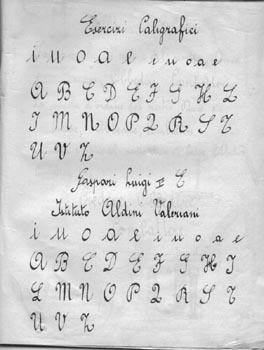 Esercizi Caligrafici
i u o a l i u o a e
A B C D E F G H L
I M N O P Q R S T
U V Z
Gaspari Luigi II C
Istituto Aldini Valeriani
i u o a l i u o a e
A B C D E F G H I
L M N O P Q R S T
U V Z